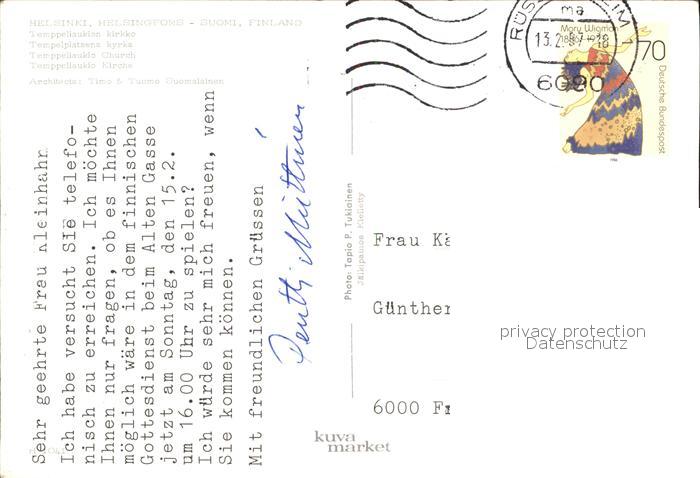 HELSINKI, HELSINGFORS - SUOMI, FINLAND
Temppeliaukion kirkko
Tempelplatsens kyrka
Temppeliaukio Church
Temppeliaukio Kirche
Architects: Timo & Tuomo Suomalainen
Sehr geehrte Frau Kleinhahn
Ich habe versucht Sie telefo-
nisch zu erreichen. Ich möchte
Ihnen nur fragen, ob es Ihnen
möglich wäre in dem finnischen
Gottesdienst beim Alten Gasse
jetzt am Sonntag, den 15.2.
um 16.00 Uhr zu spielen?
Ich würde sehr mich freuen, wenn
Sie kommen können.
Mit freundlichen Grüssen
Photo: Tapio P. Tukiainen
Jälkipainos Kielletty
kuva
market
13.2.87-18
6090
Mary Wigman
70
Deutsche Bundespost
1986
Frau
Günther
6000
privacy protection
Datenschutz